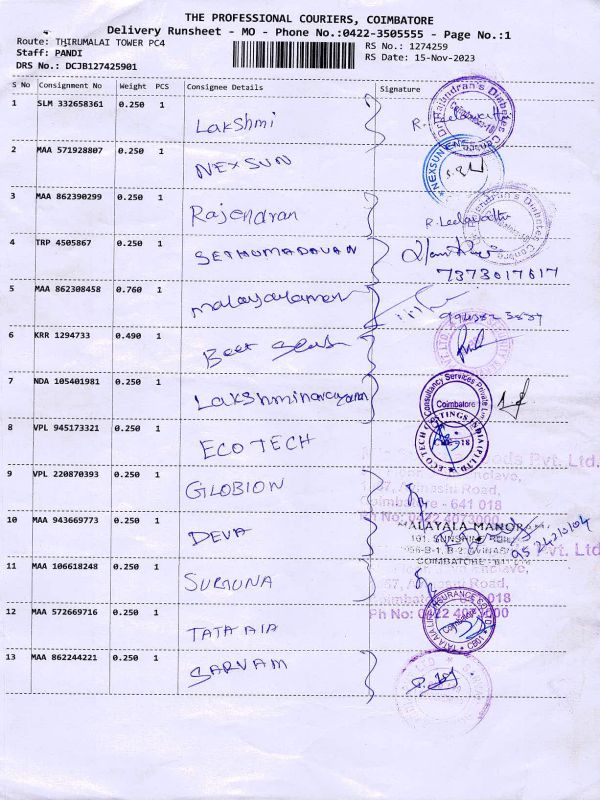 THE PROFESSIONAL COURIERS, COIMBATORE
Delivery Runsheet - MO - Phone No.:0422-3505555 - Page No.:1
Route: THIRUMALAI TOWER PC4 RS No.: 1274259
Staff: PANDI RS Date: 15-Nov-2023
DRS No.: DCJB127425901
S No Consignment No Weight PCS Consignee Details Signature
1 SLM 332658361 0.250 1 Lakshmi
2 MAA 571928807 0.250 1 NEXSUN
3 MAA 862390299 0.250 1 Rajendran R. Leelavathi
4 TRP 4505867 0.250 1 SETHUMADAVAN
7373017617
5 MAA 862308458 0.760 1 malayalamen
6 KRR 1294733 0.490 1
7 NDA 105401981 0.250 1 Lakshminarayanan
Consultancy Services Private
Coimbatore
8 VPL 945173321 0.250 1 ECOTECH
ECO TECH
Pvt. Ltd.
9 VPL 220870393 0.250 1 GLOBION
Road,
Coimbatore - 641 018
10 MAA 943669773 0.250 1 DEVA
MALAYALA MANORAMA
101, SUNSHINE
COIMBATORE - 641 018
9524210104
11 MAA 106618248 0.250 1 SUGUNA
Road,
018
Ph No: 0422
12 MAA 572669716 0.250 1 TATA AIA
TATA AIA LIFE INSURANCE CO. LTD.
Coimbatore
13 MAA 862244221 0.250 1 SARVAM